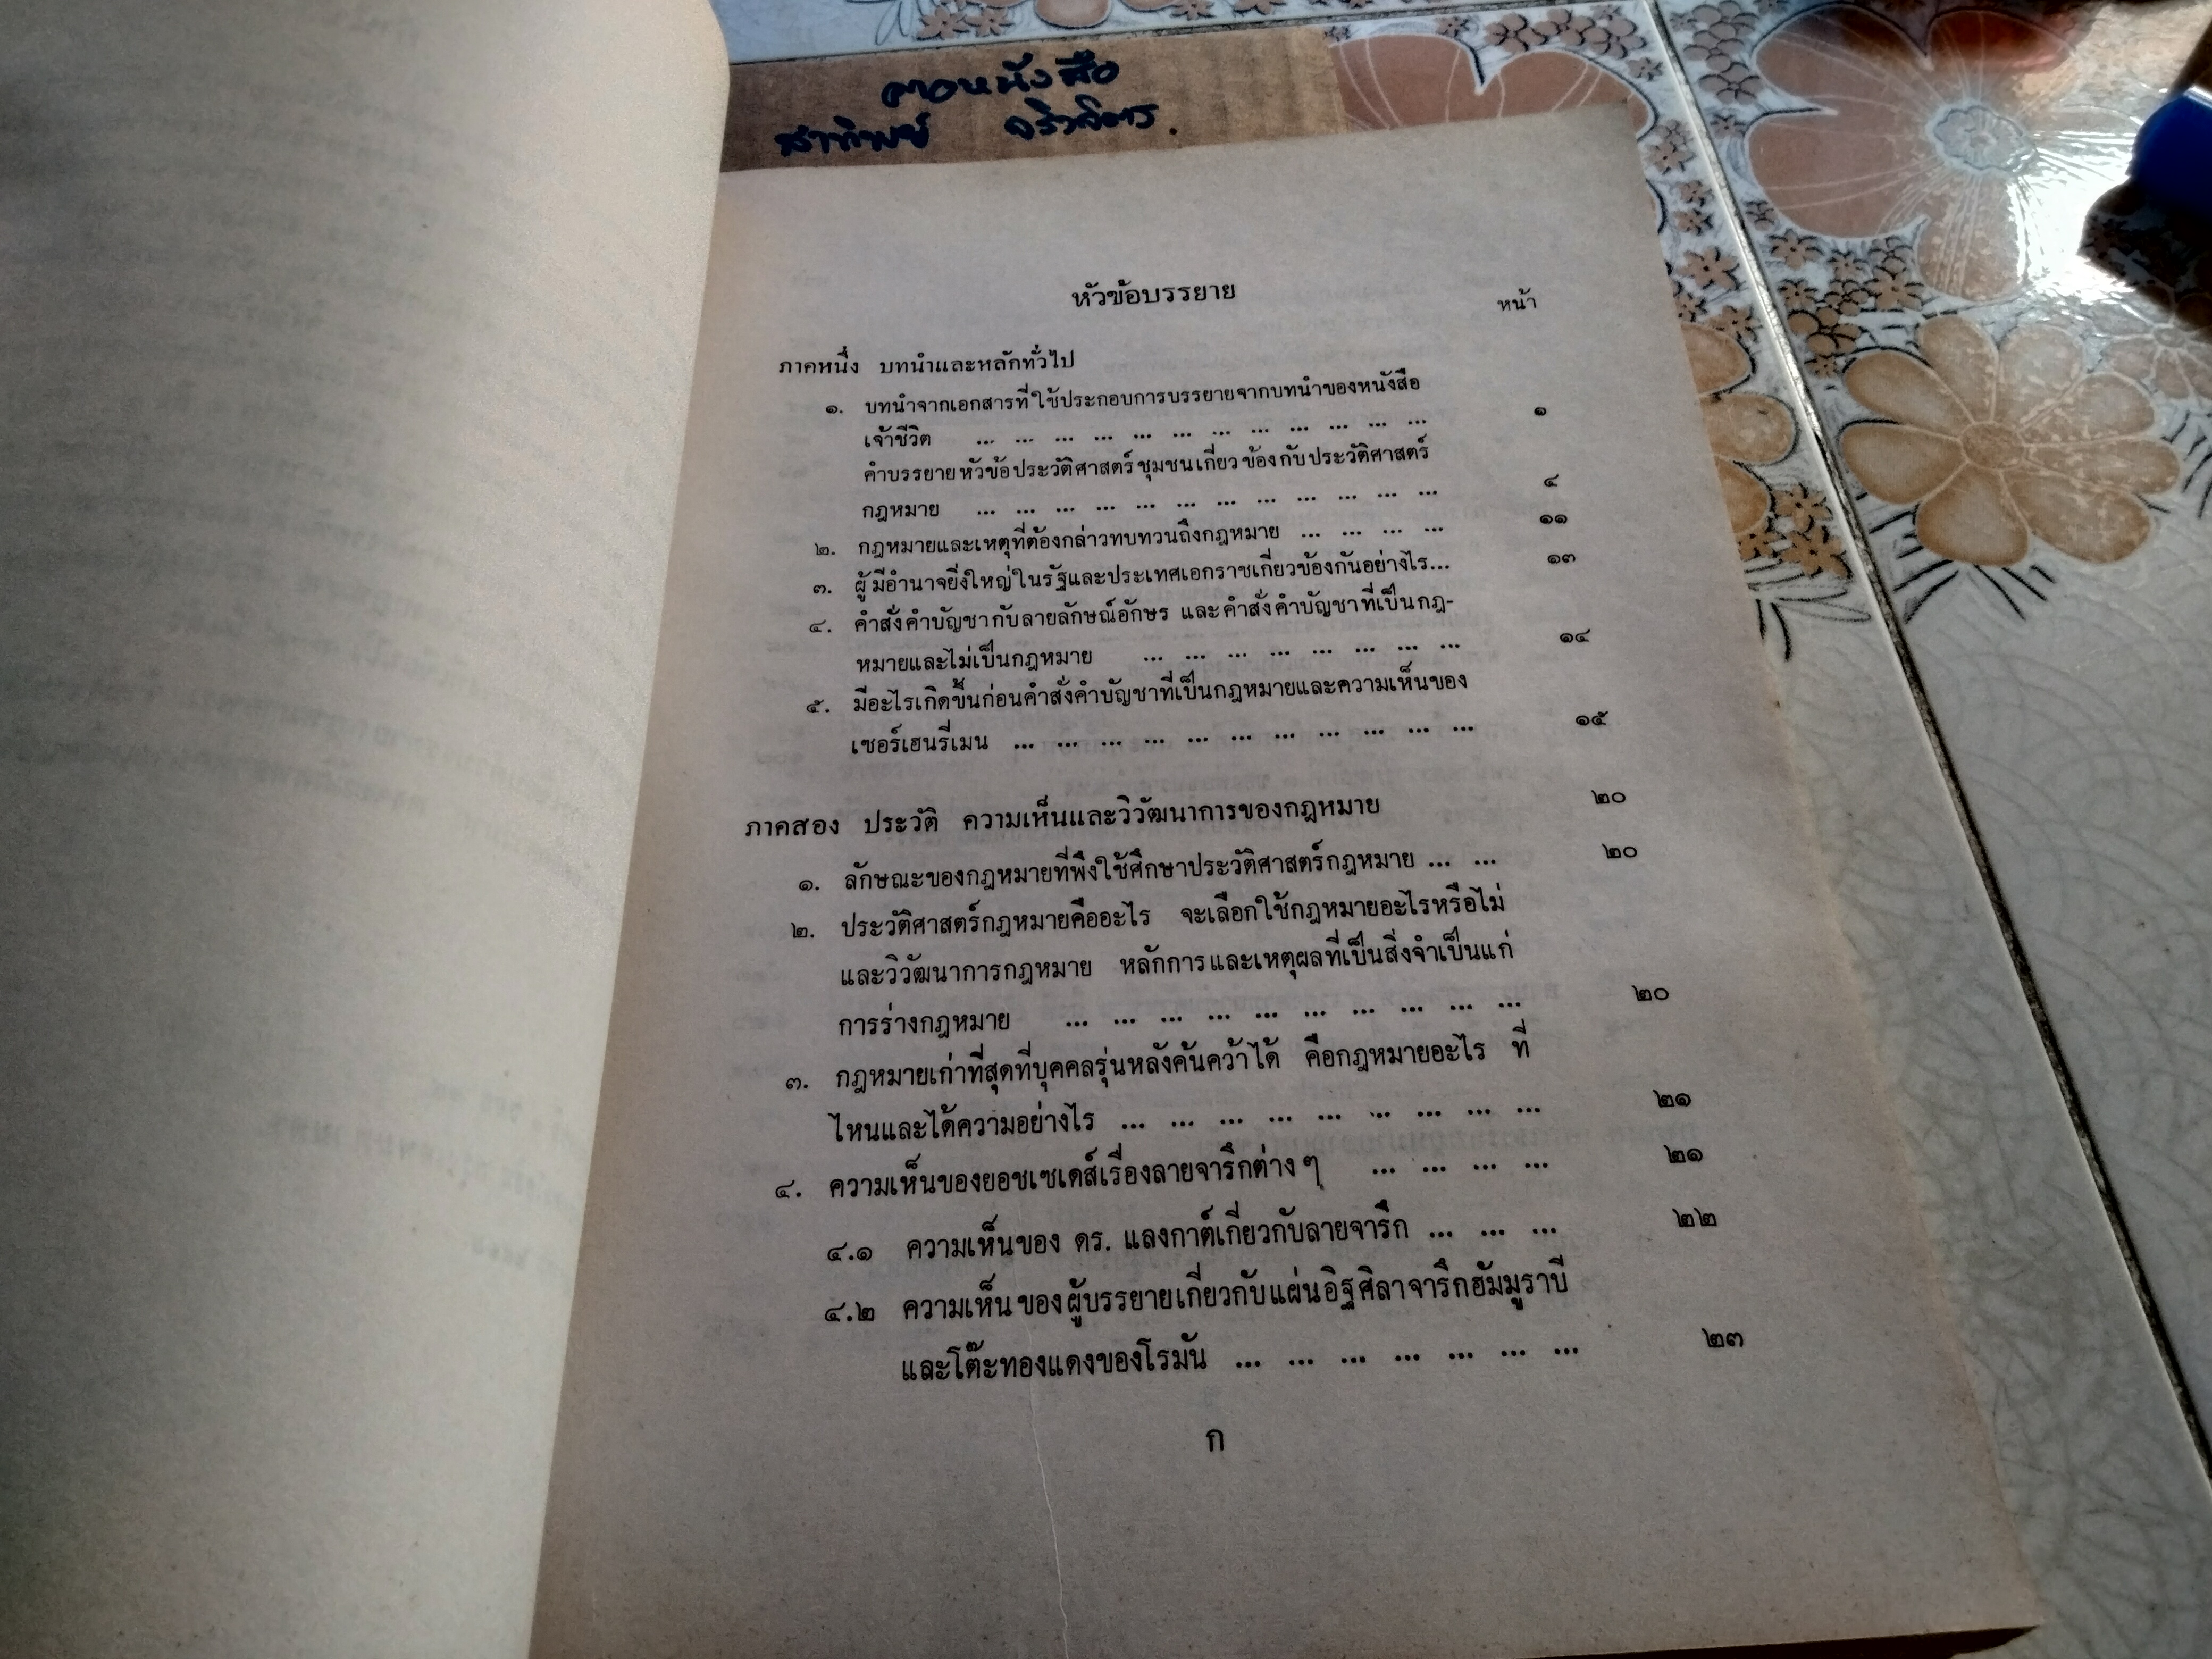 หนังสือ
หัวข้อบรรยาย
หน้า
ภาคหนึ่ง บทนำและหลักทั่วไป
๑. บทนำจากเอกสารที่ใช้ประกอบการบรรยายจากบทนำของหนังสือ
เจ้าชีวิต ... ... ... ... ... ... ... ... ... ... ... ... ๑
คำบรรยายหัวข้อประวัติศาสตร์ชุมชนเกี่ยวข้องกับประวัติศาสตร์
กฎหมาย ... ... ... ... ... ... ... ... ... ... ... ... ๔
๒. กฎหมายและเหตุที่ต้องกล่าวทบทวนถึงกฎหมาย ... ... ... ... ๑๑
๓. ผู้มีอำนาจยิ่งใหญ่ในรัฐและประเทศเอกราชเกี่ยวข้องกันอย่างไร... ๑๓
๔. คำสั่งคำบัญชากับลายลักษณ์อักษร และคำสั่งคำบัญชาที่เป็นกฎ-
หมายและไม่เป็นกฎหมาย ... ... ... ... ... ... ... ... ๑๔
๕. มีอะไรเกิดขึ้นก่อนคำสั่งคำบัญชาที่เป็นกฎหมายและความเห็นของ
เซอร์เฮนรี่เมน ... ... ... ... ... ... ... ... ... ... ... ๑๕
ภาคสอง ประวัติ ความเห็นและวิวัฒนาการของกฎหมาย ๒๐
๑. ลักษณะของกฎหมายที่พึงใช้ศึกษาประวัติศาสตร์กฎหมาย ... ... ๒๐
๒. ประวัติศาสตร์กฎหมายคืออะไร จะเลือกใช้กฎหมายอะไรหรือไม่
และวิวัฒนาการกฎหมาย หลักการและเหตุผลที่เป็นสิ่งจำเป็นแก่
การร่างกฎหมาย ... ... ... ... ... ... ... ... ... ... ๒๐
๓. กฎหมายเก่าที่สุดที่บุคคลรุ่นหลังค้นคว้าได้ คือกฎหมายอะไร ที่
ไหนและได้ความอย่างไร ... ... ... ... ... ... ... ... ... ๒๑
๔. ความเห็นของยอชเซเดส์เรื่องลายจารึกต่าง ๆ ... ... ... ... ๒๑
๔.๑ ความเห็นของ ดร. แลงกาต์เกี่ยวกับลายจารึก ... ... ... ๒๒
๔.๒ ความเห็นของผู้บรรยายเกี่ยวกับแผ่นอิฐศิลาจารึกฮัมมูราบี
และโต๊ะทองแดงของโรมัน ... ... ... ... ... ... ... ๒๓
ก